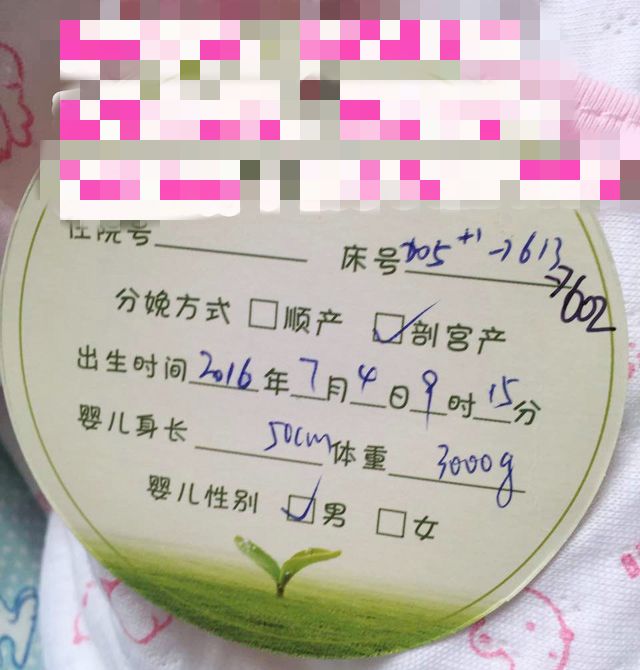 住院号 床号705+1→613
→602
分娩方式 □顺产 ☑剖宫产
出生时间2016年7月4日9时15分
婴儿身长 50cm 体重 3000g
婴儿性别 ☑男 □女